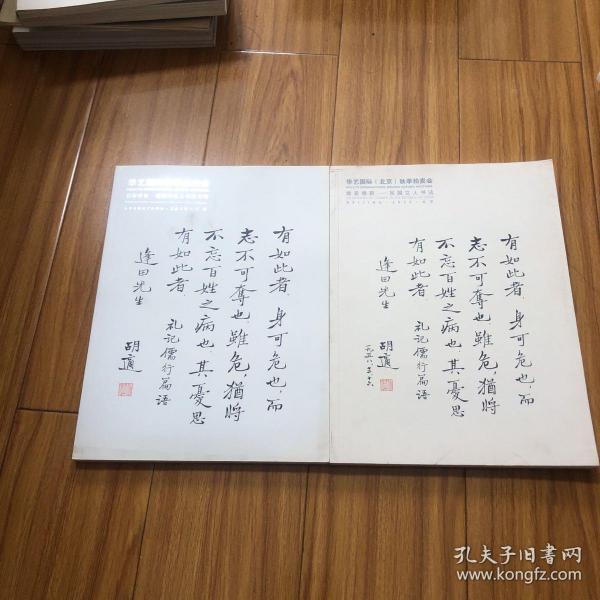 有如此者，身可危也，而
志不可奪也，雖危，猶將
不忘百姓之病也，其憂思
有如此者　礼记儒行篇语
逢田先生
胡適
华艺国际（北京）秋季拍卖会
民国文人书法
有如此者，身可危也，而
志不可奪也，雖危，猶將
不忘百姓之病也，其憂思
有如此者　礼记儒行篇语
逢田先生
胡適
一九五八、三、十六
孔夫子旧书网
www.kongfz.com